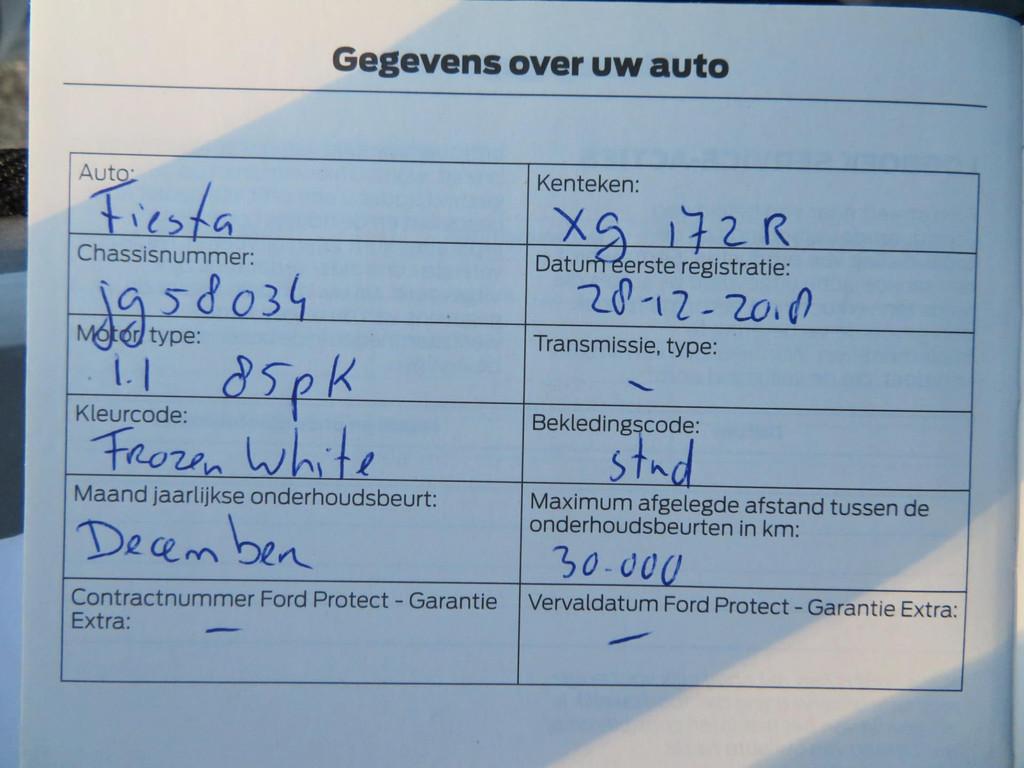 Gegevens over uw auto
Auto:
Fiesta
Kenteken:
Xg 172R
Chassisnummer:
jg58034
Datum eerste registratie:
28-12-2018
Motor type:
1.1 85pk
Transmissie, type:
-
Kleurcode:
Frozen White
Bekledingscode:
stnd
Maand jaarlijkse onderhoudsbeurt:
December
Maximum afgelegde afstand tussen de
onderhoudsbeurten in km:
30.000
Contractnummer Ford Protect - Garantie
Extra: -
Vervaldatum Ford Protect - Garantie Extra:
-